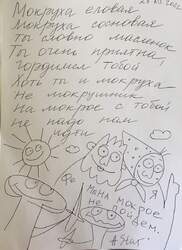 28.10.2022
Мокруха еловая
Мокруха сосновая
Ты словно масленок
Ты очень приятна,
гордимся тобой
Хоть ты и мокруха
Не мокрушник
На мокрое с тобой
не надо нам
идти
На мокрое
не пойдем.
Я